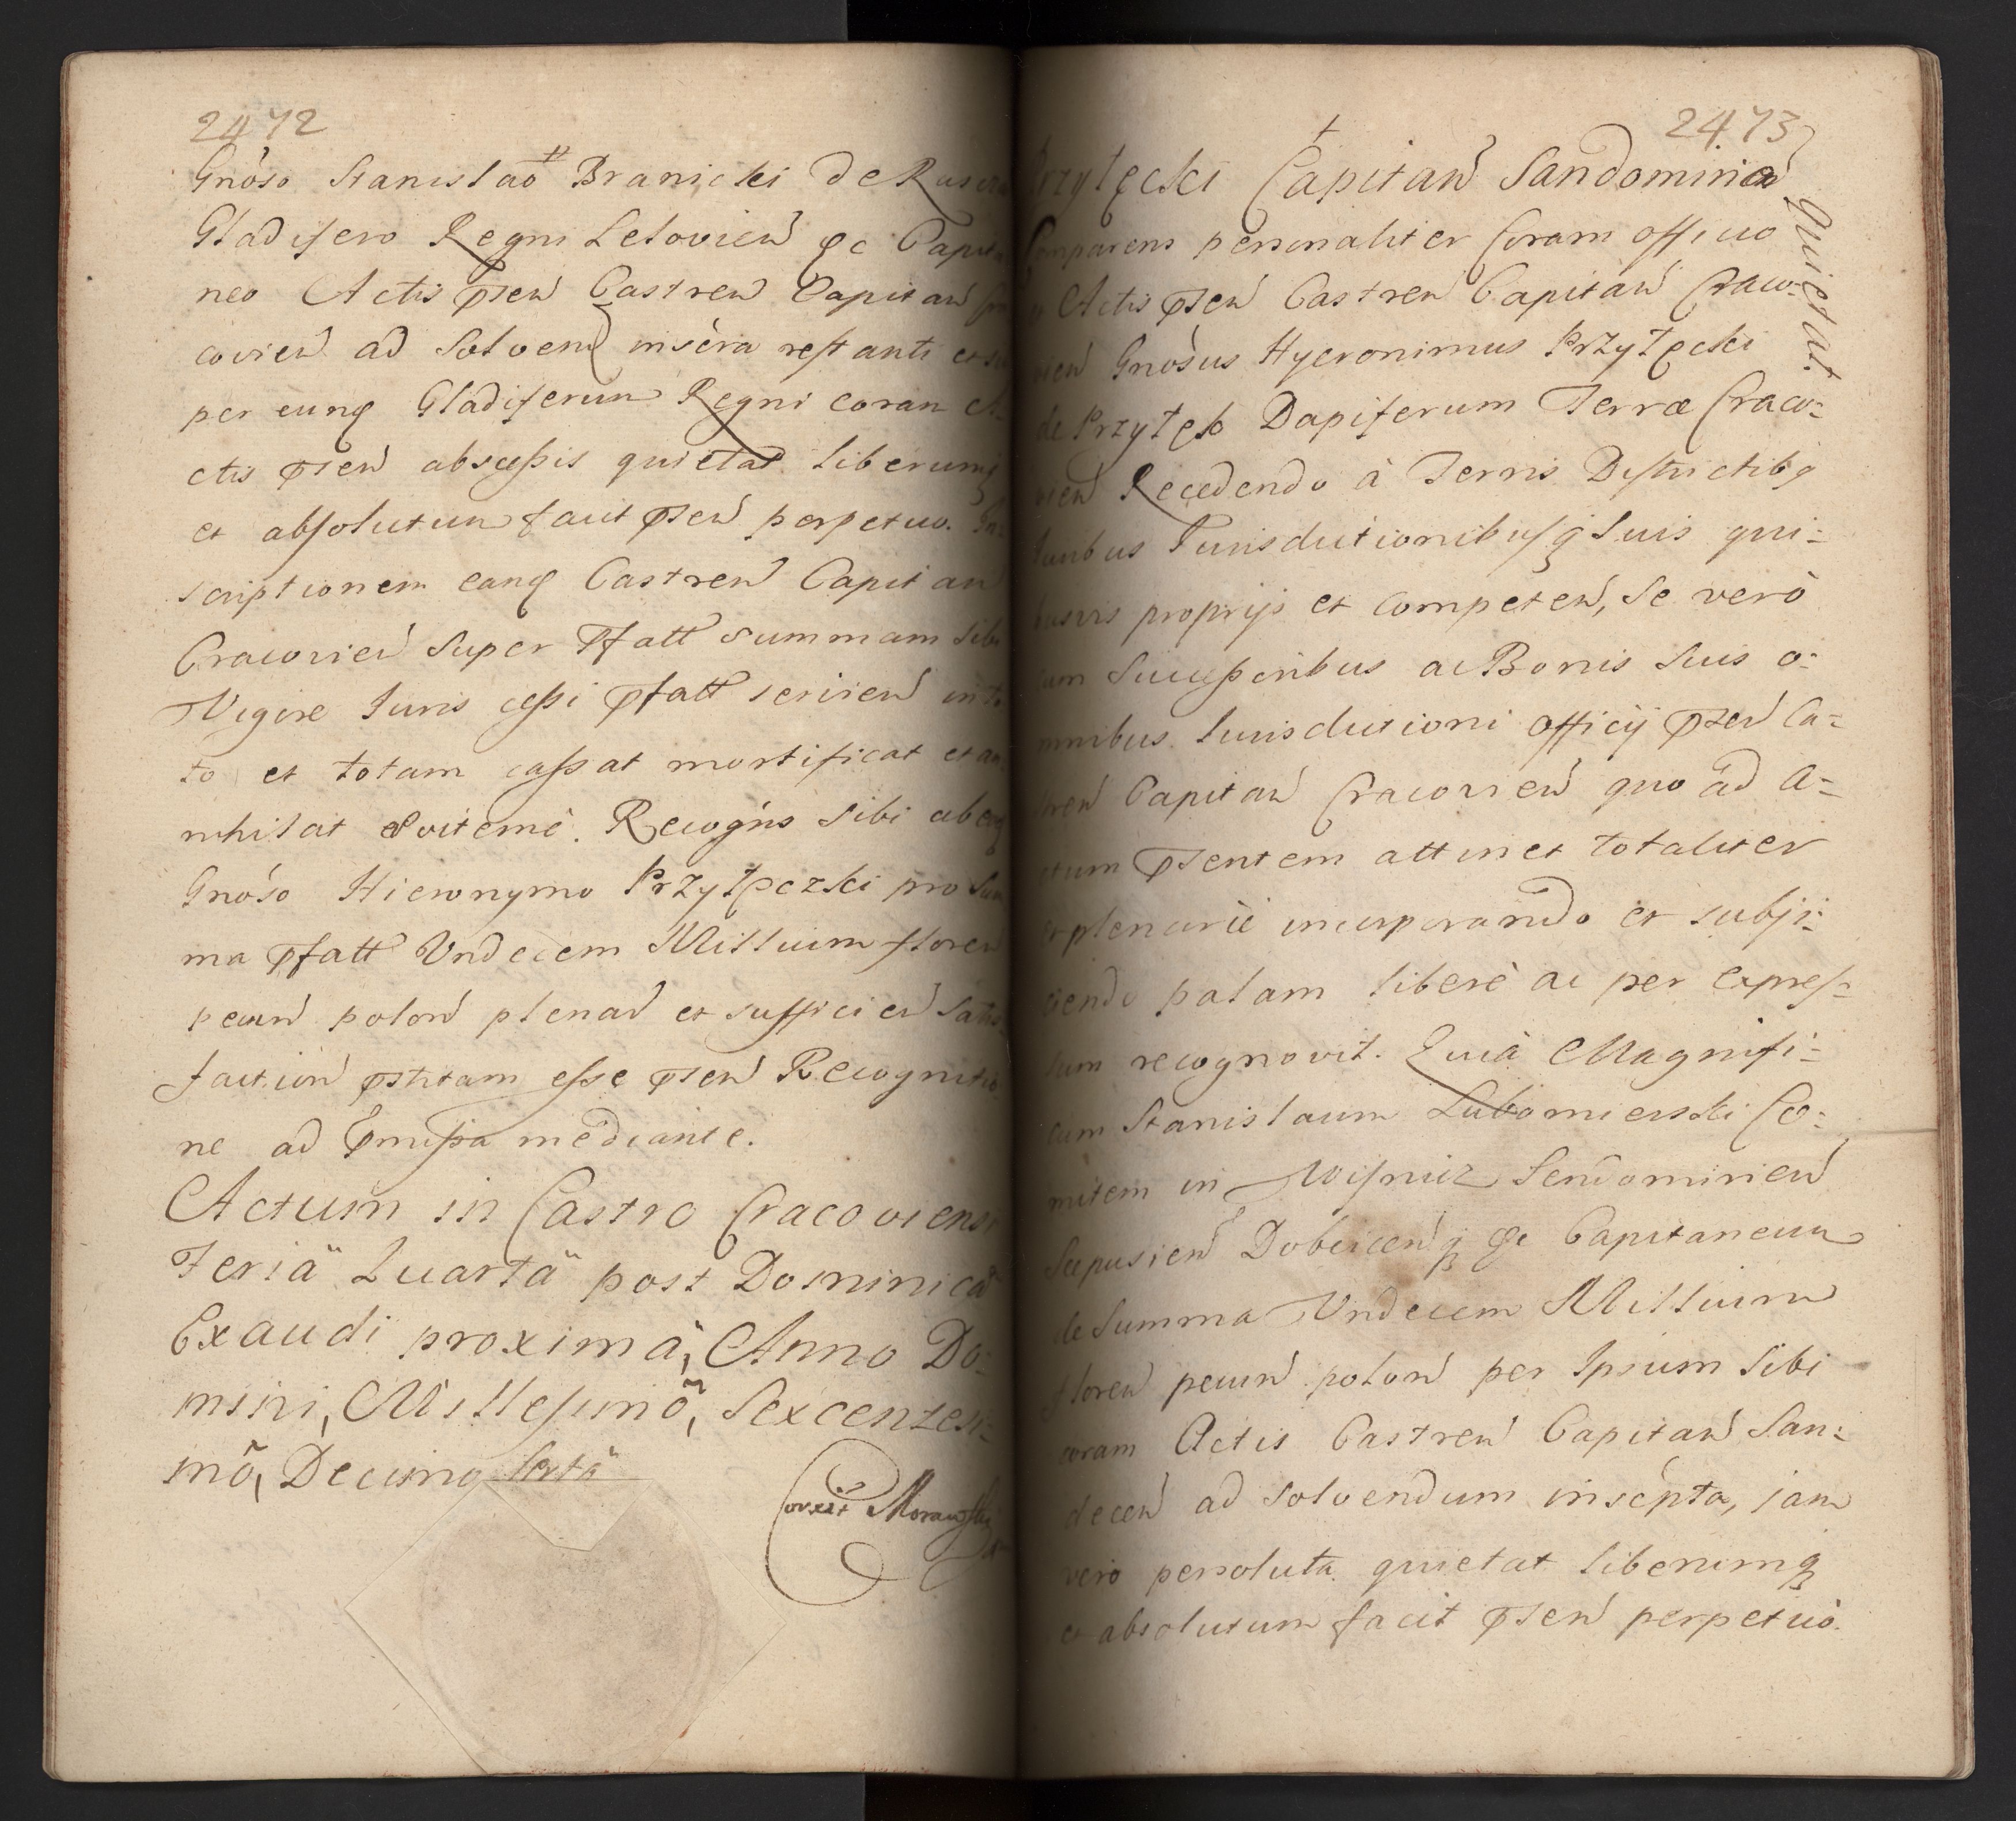 2472
Gnoso Stanislao Branicki de
Gladifero Regni Lelovien &c Capita
neo Actis pnsen Castren Capitan
covien ad solvend inscra restanti
per eunq Gladiferum Regni coram A
ctis pnsen abscessis quietat liberumq
et absolutum facit pnsen perpetuo. In
scriptionem eanq Castren Capitan
Cracovien super pfatt summam sibi
Vigore Iuris cessi pfatt servien in to
to et totam cassat mortificat et an
nihilat eviterne. Recogns sibi ab
Gnoso Hieronymo Przyłęczki pro sum
ma pfatt Undecem Millium floren
pecun polon plenar et sufficien Satis
faction pstitam esse pnsen Recognitio
ne ad pmissa mediante.
Actum in Castro Cracoviensi
Feriä Quartä post Dominica
Exaudi proximä, Anno Do=
mini, Millesimo, Sexcentesi=
mo, Decimo Sexto
Corexit
2473
Przyłęcki Capitan Sandomirien
Quietat.
Comparens personaliter Coram officio
Actis pnsen Castren Capitan Craco=
vien Gnosus Hyeronimus Przyłęcki
de Przyłęk Dapiferum Terræ Craco=
vien Recedendo à Terris Districtibq
Iuribus Iurisdictionibusq Suis qui=
busvis proprijs et competen, se verò
cum Successoribus ac Bonis suis o=
mnibus Iurisdictioni officij pnsen Ca=
stren Capitan Cracovien quo ad A=
ctum pnsentem attinet totaliter
et plenarie incorporando et subji=
ciendo palam liberè ac per expres=
sum recognovit. Quià Magnifi=
cum Stanislaum Lubomierski Co=
mitem in Wisnicz Sendomirien
Scepusien Dobcicenq &c Capitaneum
de Summa Undecem Millium
floren pecun polon per Ipsum Sibi
coram Actis Castren Capitan San=
decen ad solvendum inscpta, jam
verò persoluta quietat liberumq
et absolutum facit pnsen perpetuò.